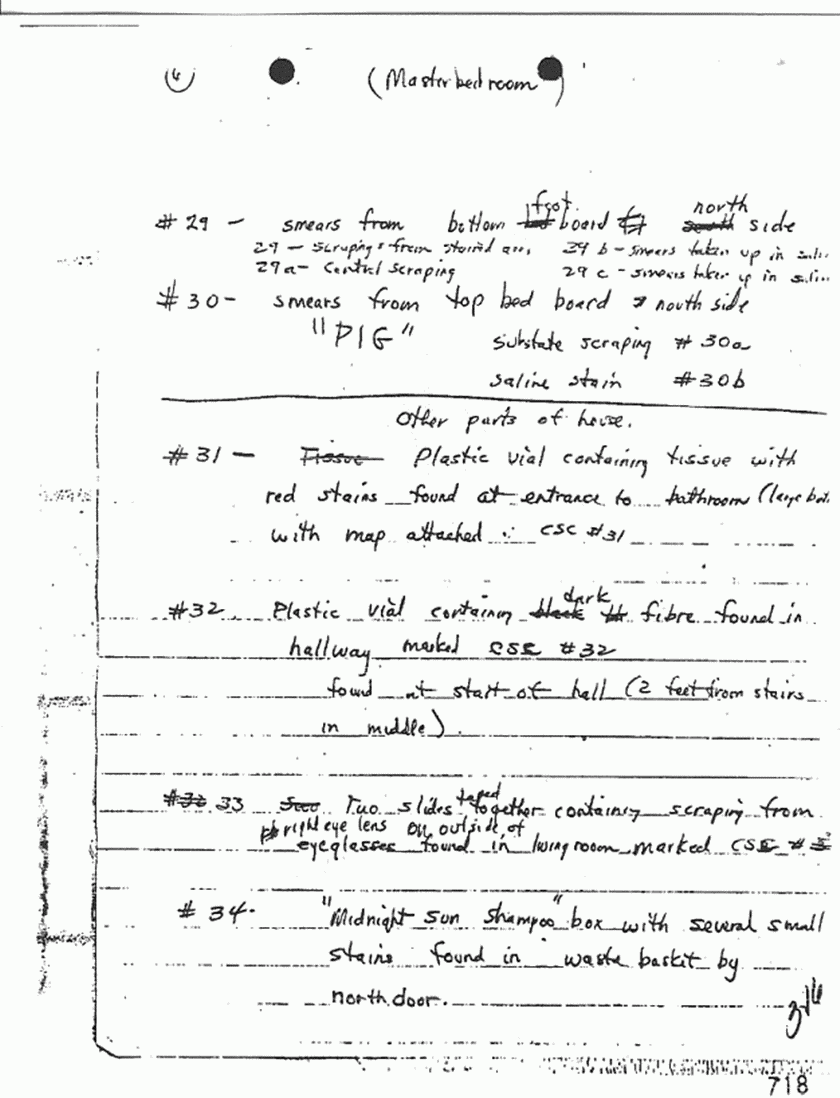 6
(Master bed room)
#29 - smears from bottom foot board north side
29 - scrapings from stained area 29 b - smears taken up in
29a - Control scraping 29 c - smears taken up in saline
#30 - smears from top bed board north side
"PIG" substate scraping #30a
saline stain #30b
Other parts of house.
#31 - Tissue Plastic vial containing tissue with
red stains found at entrance to bathroom (large
with map attached CSC #31
#32 Plastic vial containing black dark fibre found in
hallway marked CSC #32
found at start of hall (2 feet from stairs
in middle).
#32 33 Two slides taped together containing scraping from
right eye lens on outside of
eyeglasses found in living room marked CSC #3
#34. "Midnight Sun Shampoo" box with several small
stains found in waste baskit by
north door.
316
718